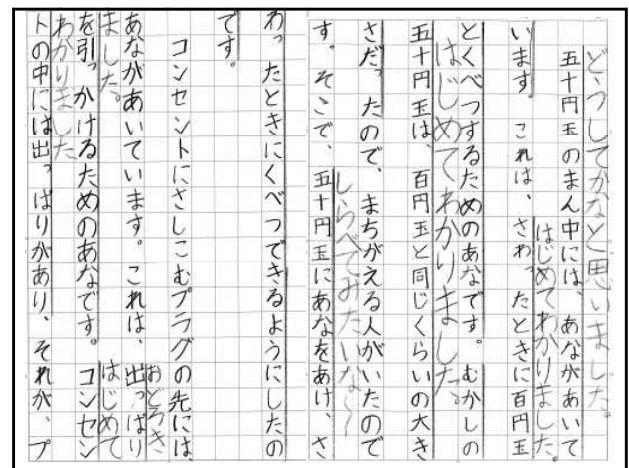 どうしてかなと思いました。
五十円玉のまん中には、あながあいて
はじめてわかりました。
います。これは、さわったときに百円玉
とくべつするためのあなです。むかしの
はじめてわかりました。
五十円玉は、百円玉と同じくらいの大き
さだったので、まちがえる人がいたので
しらべてみたいな〜
す。そこで、五十円玉にあなをあけ、さ
わったときにくべつできるようにしたの
です。
コンセントにさしこむプラグの先には、
おどろき
あながあいています。これは、出っぱり
ました。
はじめて
を引っかけるためのあなです。コンセン
わかりました
トの中には出っぱりがあり、それが、プ